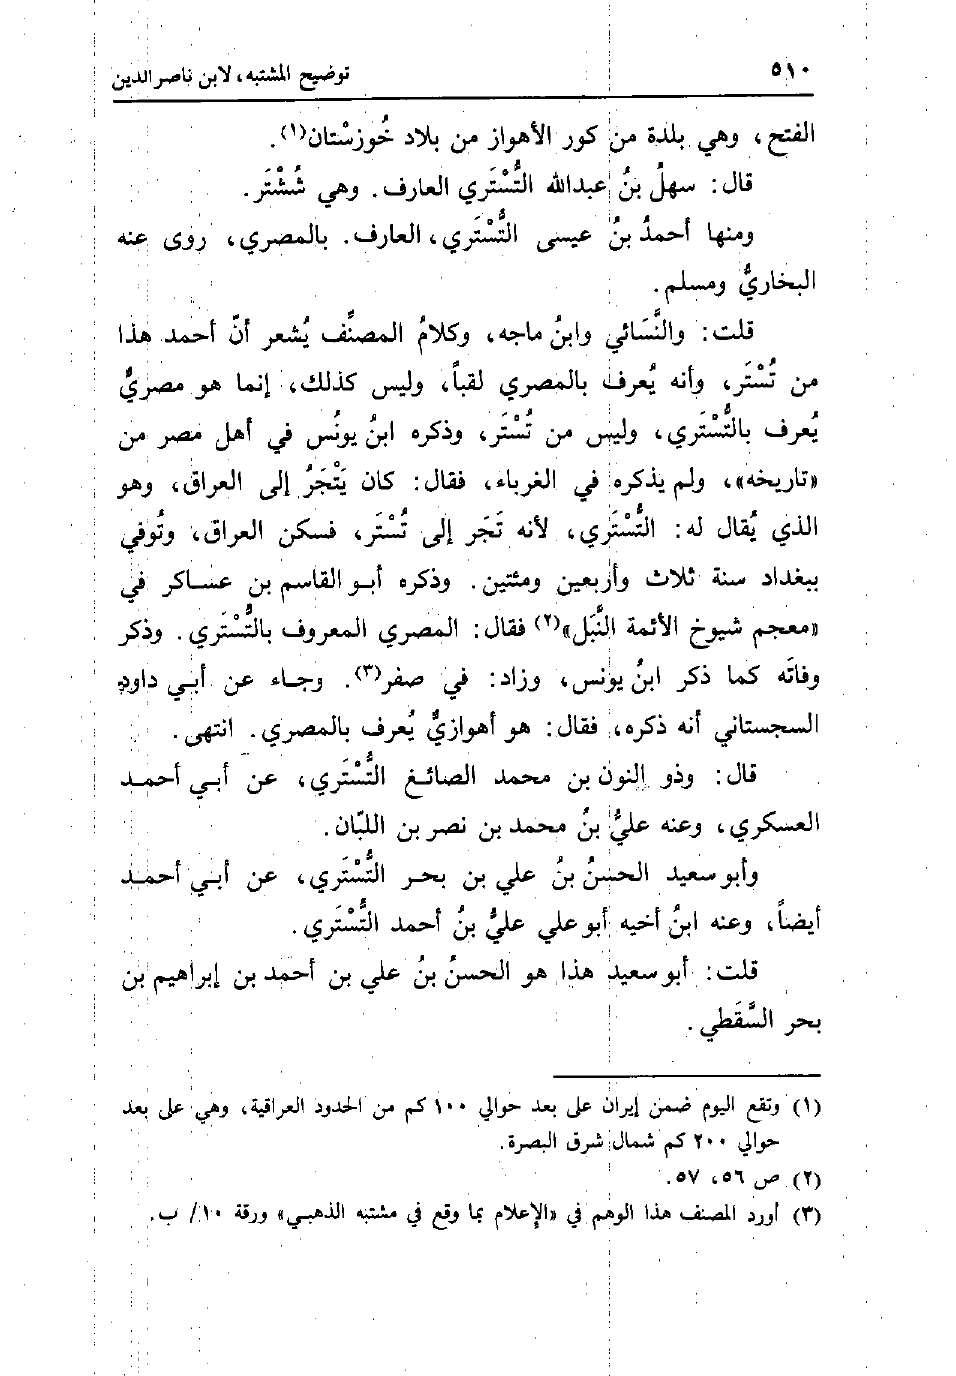 ٥١٠
توضيح المشتبه، لابن ناصر الدين
الفتح، وهي بلدة من كور الأهواز من بلاد خُوزسْتان(١).
قال: سهلُ بنُ عبدالله التُّسْتَري العارف. وهي شُشْتَر.
ومنها أحمدُ بنُ عيسى التُّسْتَري، العارف. بالمصري، روى عنه
البخاريُّ ومسلم.
قلت: والنَّسَائي وابنُ ماجه، وكلامُ المصنِّف يُشعر أنّ أحمد هذا
من تُسْتَر، وأنه يُعرف بالمصري لقباً، وليس كذلك، إنما هو مصريٌّ
يُعرف بالتُّسْتَري، وليس من تُسْتَر، وذكره ابنُ يونُس في أهل مصر من
«تاريخه»، ولم يذكره في الغرباء، فقال: كان يَتْجَرُ إلى العراق، وهو
الذي يُقال له: التُّسْتَري، لأنه تَجَر إلى تُسْتَر، فسكن العراق، وتُوفي
ببغداد سنة ثلاث وأربعين ومئتين. وذكره أبو القاسم بن عساكر في
«معجم شيوخ الأئمة النَّبَل»(٢) فقال: المصري المعروف بالتُّسْتَري. وذكر
وفاتَه كما ذكر ابنُ يونس، وزاد: في صفر(٣). وجاء عن أبي داود
السجستاني أنه ذكره، فقال: هو أهوازيٌّ يُعرف بالمصري. انتهى.
قال: وذو النون بن محمد الصائغ التُّسْتَري، عن أبي أحمد
العسكري، وعنه عليُّ بنُ محمد بن نصر بن اللبّان.
وأبو سعيد الحسنُ بنُ علي بن بحر التُّسْتَري، عن أبي أحمد
أيضاً، وعنه ابنُ أخيه أبو علي عليُّ بنُ أحمد التُّسْتَري.
قلت: أبو سعيد هذا هو الحسنُ بنُ علي بن أحمد بن إبراهيم بن
بحر السَّقَطي.
(١) وتقع اليوم ضمن إيران على بعد حوالي ١٠٠ كم من الحدود العراقية، وهي على بعد
حوالي ٢٠٠ كم شمال شرق البصرة.
(٢) ص ٥٦، ٥٧.
(٣) أورد المصنف هذا الوهم في «الإعلام بما وقع في مشتبه الذهبي» ورقة ١٠/ ب.